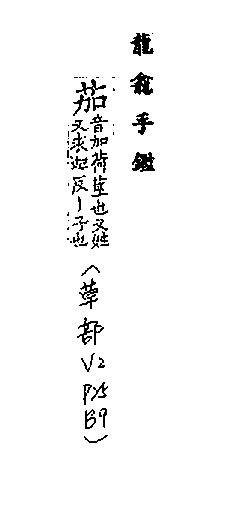 龍龕手鑑
茄音加荷莖也又姓
又求迦反丨子也
(草部
V2
P25
B9)